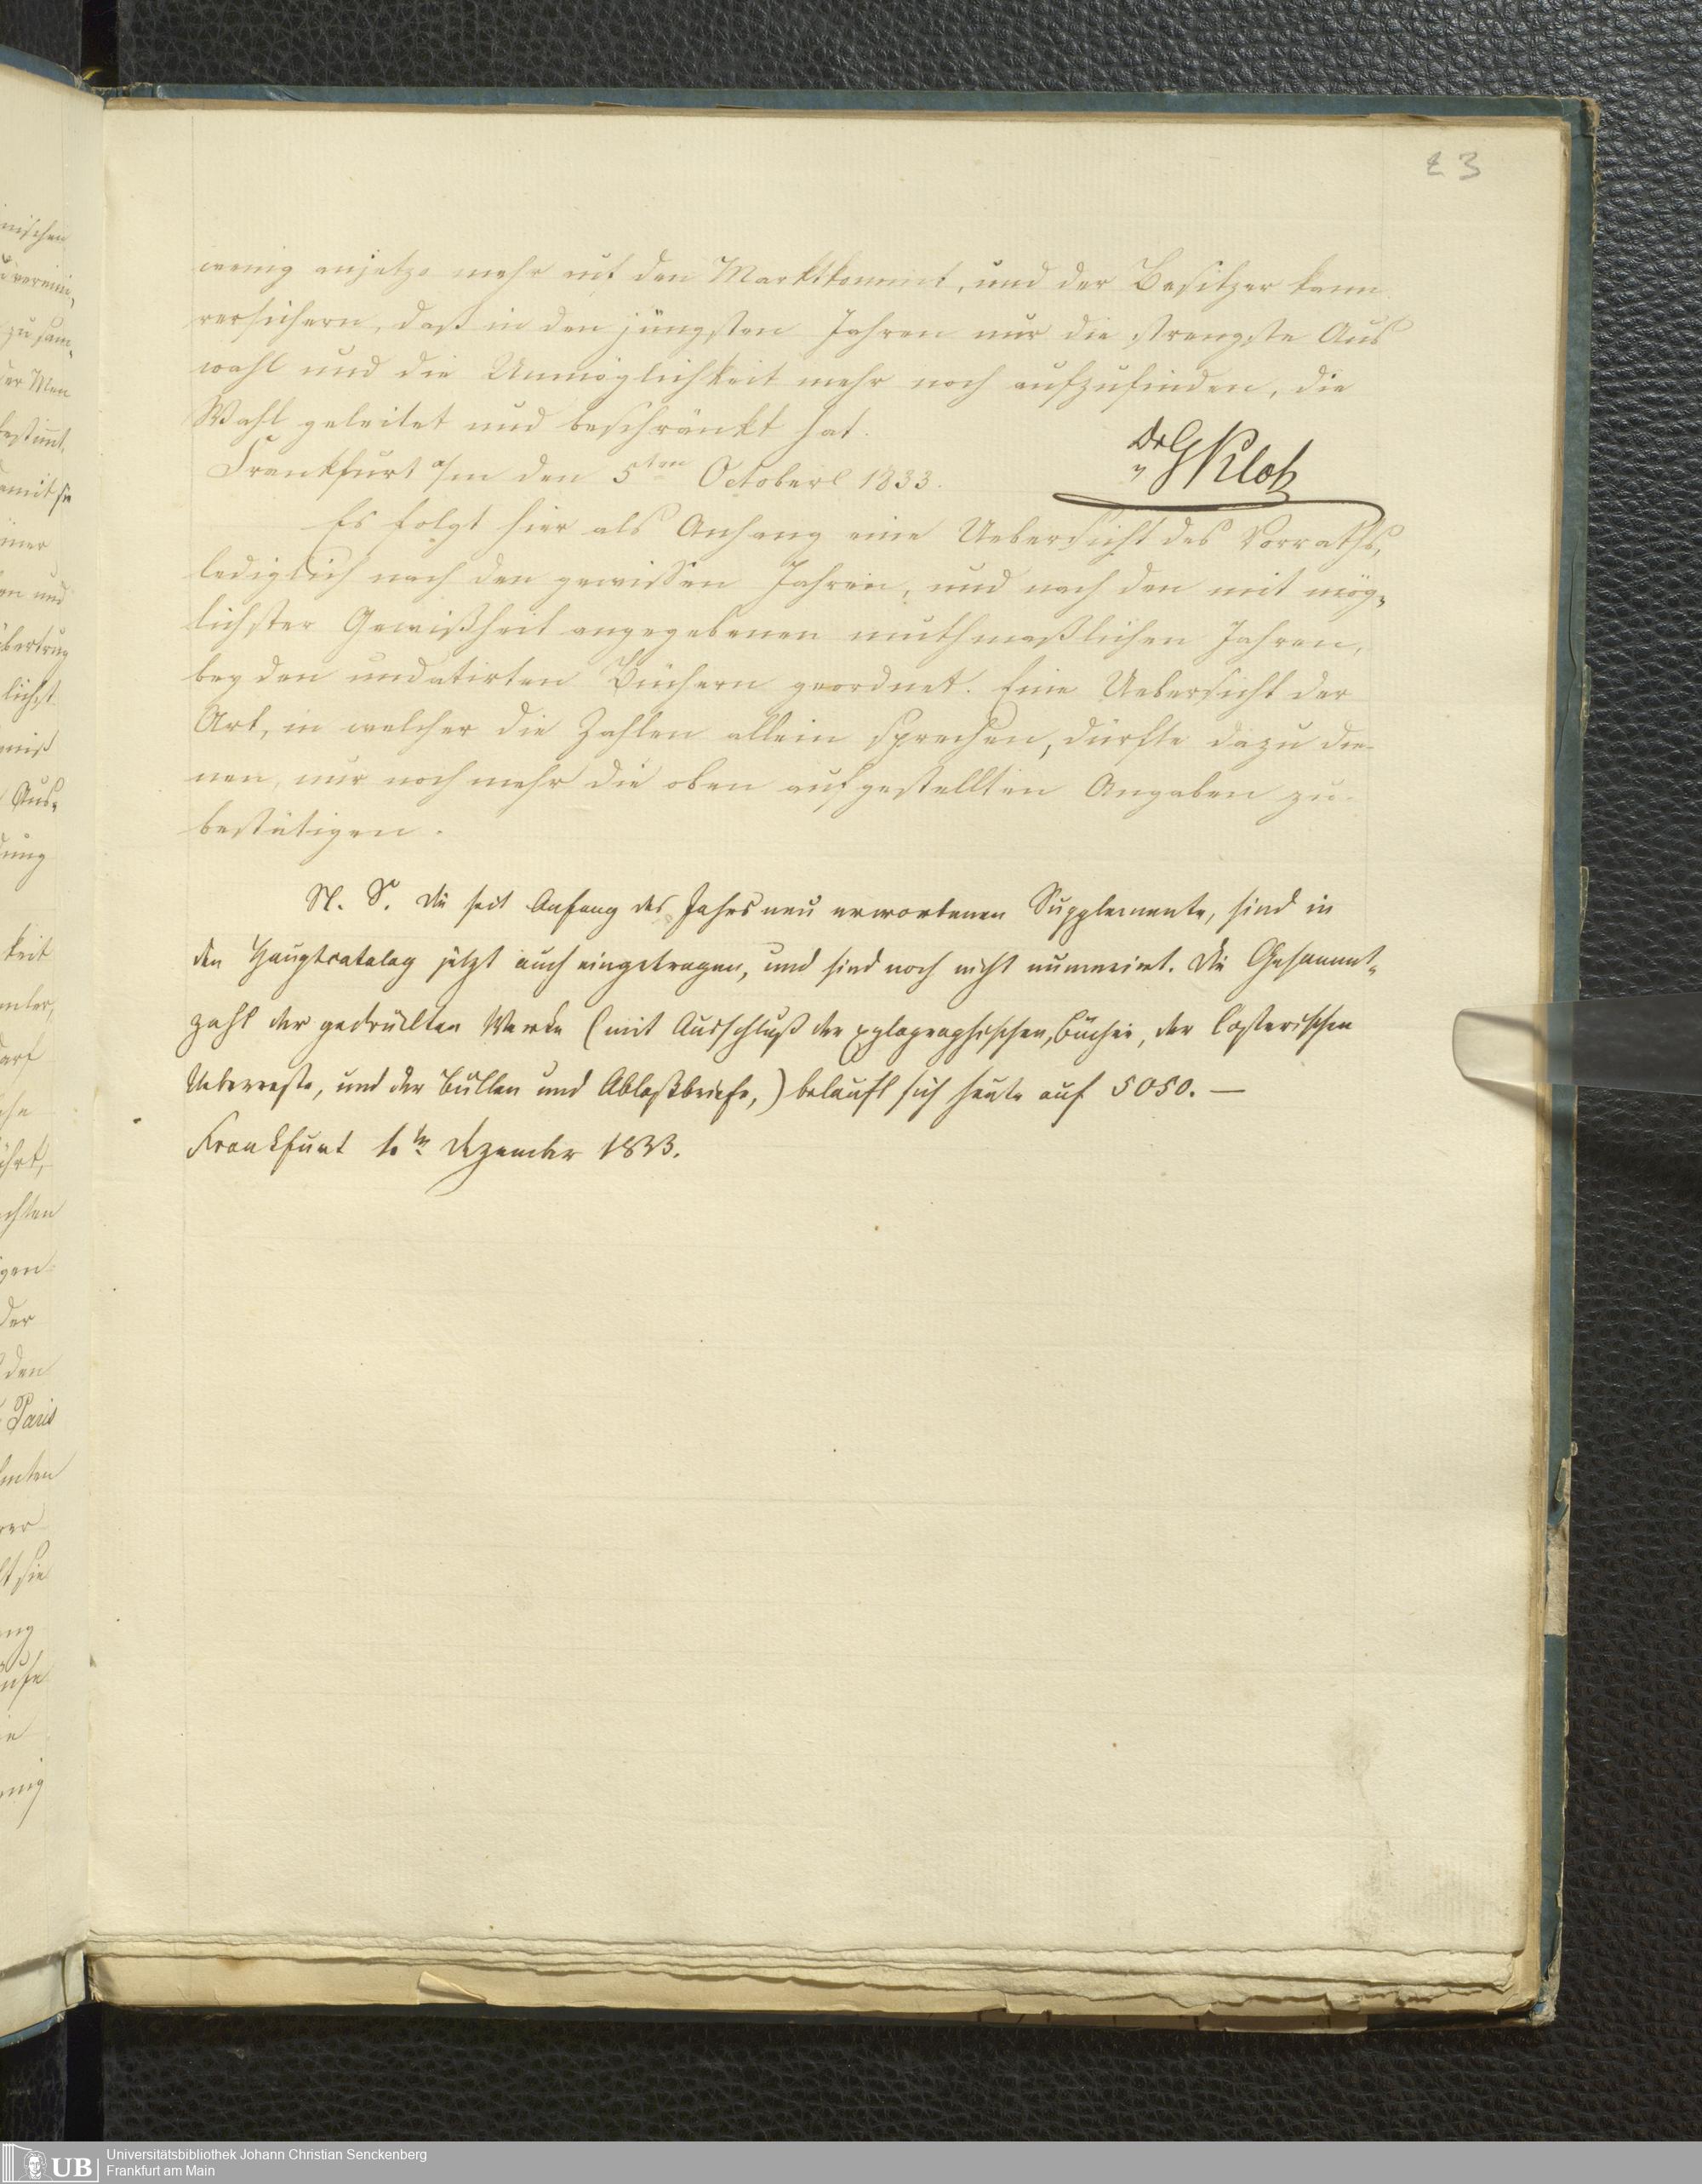 23
wenig anjetzo mehr auf den Markt kommt, und der Besitzer kann
versichern, daß in den jüngsten Jahren nur die strengste Aus
wahl und die Unmöglichkeit mehr noch aufzufinden, die
Wahl geleitet und beschränkt hat.
Frankfurt a/m den 5ten Octoberl 1833.
Dr G Kloß
Es folgt hier als Anhang eine Uebersicht des Vorraths,
lediglich nach den gewissen Jahren, und nach den mit mög„
lichster Gewißheit angegebenen muthmaßlichen Jahren,
bey den undatirten Büchern geordnet. Eine Uebersicht der
Art, in welcher die Zahlen allein sprechen, dürfte dazu die-
nen, nur noch mehr die oben aufgestellten Angaben zu
bestätigen.
N. S. Die seit Anfang des Jahrs neu erworbenen Supplemente, sind in
den Hauptcatalog jetzt auch eingetragen, und sind noch nicht numerirt. Die Gesammt„
zahl der gedruckten Werke (mit Ausschluß der xylographischen Bücher, der Costerischen
Ueberreste, und der Bullen und Ablaßbriefe,) belauft sich heute auf 5050. —
Frankfurt 1.tn Dezember 1833.
nischen
verein„
zu sam„
der Men
bestimt.
damit sie
einer
en und
lichst
Aus„
dung
keit
darf
ührt,
chten
gen
der
den
Paris
sie
ung
wenig
UB
Universitätsbibliothek Johann Christian Senckenberg
Frankfurt am Main